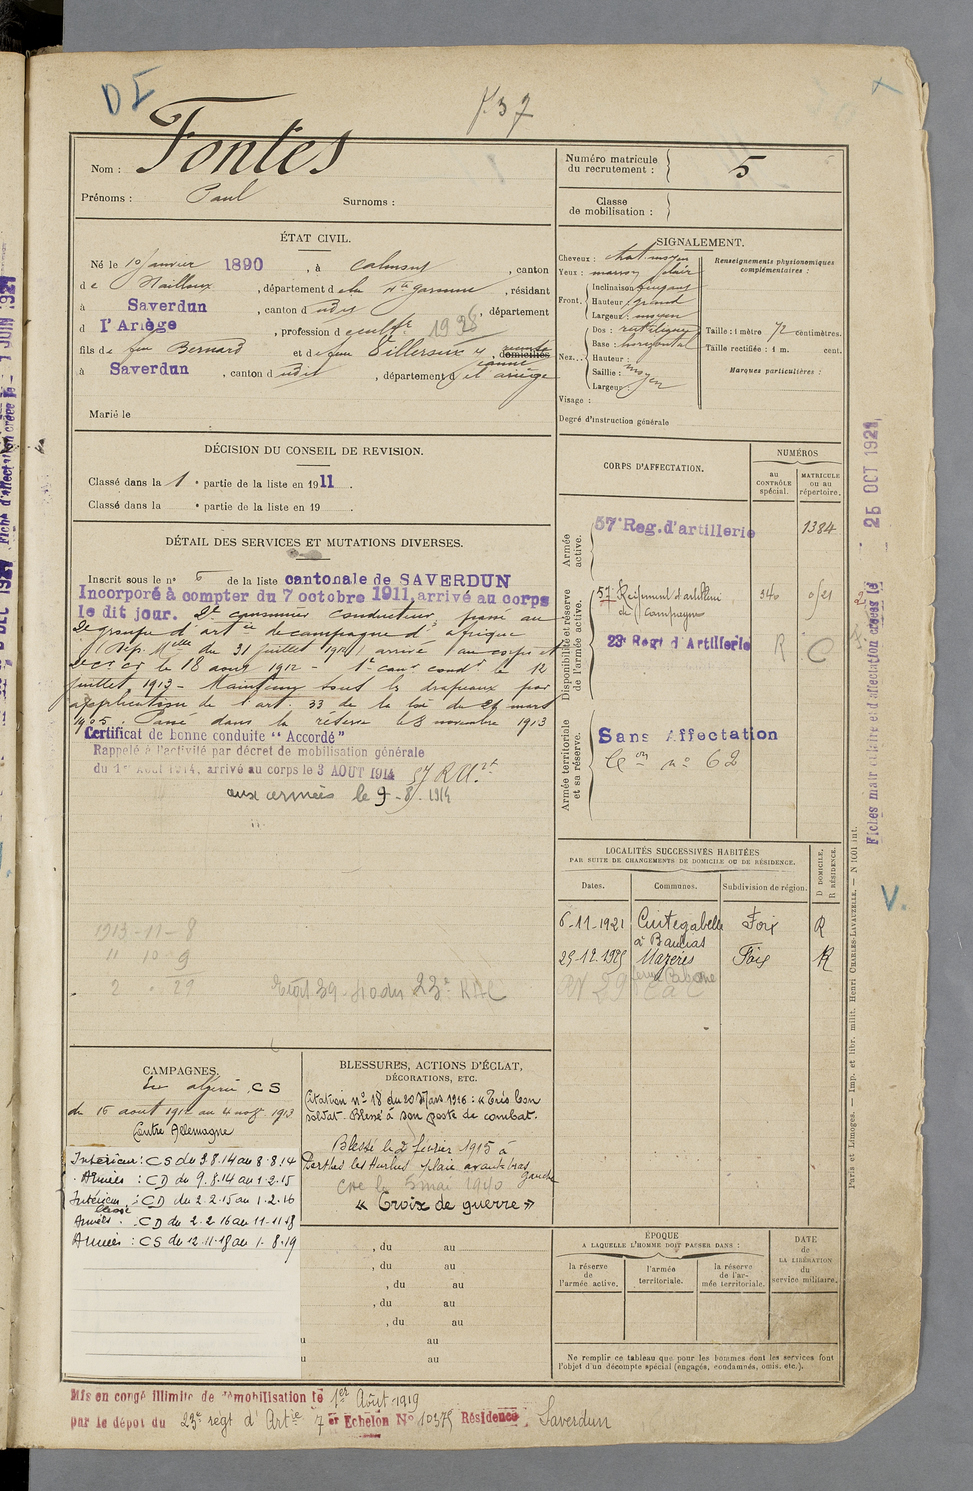 DE
f. 37
Nom : Fontes
Prénoms : Paul Surnoms :
Numéro matricule du recrutement : 5
Classe de mobilisation :
ÉTAT CIVIL.
Né le 10 janvier 1890, à Calmont, canton
de Nailloux, département de la Hte Garonne, résidant
à Saverdun, canton dudit, département
d l'Ariège, profession de cultr 1938
fils de feu Bernard et de feue
domiciliés
à Saverdun, canton dudit, département de l'Ariège
Marié le
SIGNALEMENT.
Cheveux : chat. moyen
Yeux : marron clair
Front. Inclinaison fuyant
Hauteur : grand
Largeur : moyen
Nez. Dos : rectiligne
Base : horizontal
Hauteur :
Saillie : moyen
Largeur :
Visage :
Degré d'instruction générale
Renseignements physionomiques complémentaires :
Taille : 1 mètre 72 centimètres.
Taille rectifiée : 1 m. cent.
Marques particulières :
DÉCISION DU CONSEIL DE REVISION.
Classé dans la 1e partie de la liste en 1911.
Classé dans la e partie de la liste en 19 .
DÉTAIL DES SERVICES ET MUTATIONS DIVERSES.
Inscrit sous le no 5 de la liste cantonale de SAVERDUN
Incorporé à compter du 7 octobre 1911, arrivé au corps
le dit jour. 2e canonnier conducteur, passé au
2e groupe d'artie de campagne d'Afrique
(Dép. Mlle du 31 juillet 1912) arrivé au corps et
2e cr cr le 18 août 1912 - 1er canr condr le 12
juillet 1913 - Maintenu sous les drapeaux par
application de l'art. 33 de la loi du 21 mars
1905. Passé dans la réserve le 8 novembre 1913
Certificat de bonne conduite "Accordé"
Rappelé à l'activité par décret de mobilisation générale
du 1er Août 1914, arrivé au corps le 3 AOUT 1914 57 R
aux armées le 9-8-1914
1913-11-8
11 10-9
2 . 29
23e RAC
CORPS D'AFFECTATION.
NUMÉROS
au CONTRÔLE spécial.
MATRICULE ou au répertoire.
Armée active.
57e Reg. d'artillerie 1384
Disponibilité et réserve de l'armée active.
57 Régiment d'artillerie de campagne 346 0/21
23e Regt d'Artillerie R C
Armée territoriale et sa réserve.
Sans Affectation
no 62
LOCALITÉS SUCCESSIVES HABITÉES
PAR SUITE DE CHANGEMENTS DE DOMICILE OU DE RÉSIDENCE.
Dates. Communes. Subdivision de région. D DOMICILE, R RÉSIDENCE.
6-11-1921 Cintegabelle Foix R
à Baccias
25-12-1925 Mazères Foix R
CAMPAGNES.
En Algérie CS
du 16 août 1912 au 4 novr 1913
Contre Allemagne
Intérieur : CS du 3.8.14 au 8.8.14
Armées : CD du 9.8.14 au 1.2.15
Intérieur : CD du 2.2.15 au 1.2.16
blessé
Armées : CD du 2.2.16 au 11-11-18
Armées : CS du 12.11.18 au 1.8.19
BLESSURES, ACTIONS D'ÉCLAT,
DÉCORATIONS, ETC.
Citation no 18 du 20 Mars 1916 : « Très bon
soldat. Blessé à son poste de combat.
Blessé le 2 février 1915 à
Perthes les Hurlus plaie avant-bras
gauche
« Croix de guerre »
, du au
, du au
, du au
, du au
, du au
u au
u au
ÉPOQUE
A LAQUELLE L'HOMME DOIT PASSER DANS :
la réserve de l'armée active.
l'armée territoriale.
la réserve de l'armée territoriale.
DATE DE LA LIBÉRATION du service militaire.
Ne remplir ce tableau que pour les hommes dont les services font
l'objet d'un décompte spécial (engagés, condamnés, omis, etc.).
Mis en congé illimité de démobilisation le 1er Août 1919
par le dépot du 23e régt d'Artie 7e Echelon No 10375 Résidence Saverdun
Paris et Limoges. — Imp. et libr. milit. Henri CHARLES-LAVAUZELLE. — N 1001 int.
25 OCT 1921
V.
1 JUIN 192